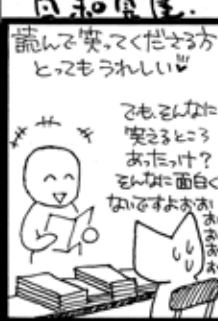 日和見屋.
読んで笑ってくださる方
とってもうれしい
でも、そんなに
笑えるところ
あったっけ?
そんなに面白く
ないですよおお
おおおお